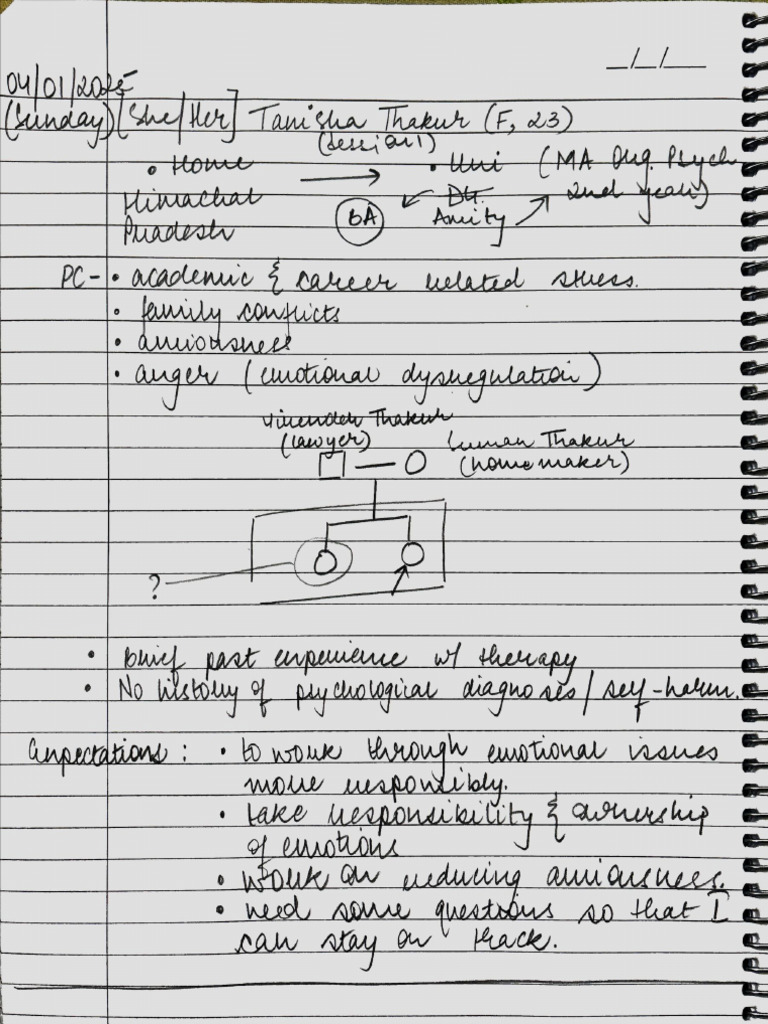 _/_/__
04/01/2025
(Sunday) [She/Her] Tanisha Thakur (F, 23)
(session 1)
• Home → • Uni (MA Org. Psych
Himachal DU. 2nd year)
Pradesh BA Amity
PC - • academic & career related stress.
• family conflicts
• anxiousness
• anger (emotional dysregulation)
Virender Thakur
(lawyer) Suman Thakur
(homemaker)
?
• brief past experience w/ therapy
• No history of psychological diagnoses / self-harm.
Expectations: • to work through emotional issues
more responsibly.
• take responsibility & ownership
of emotions
• work on reducing anxiousness.
• need some questions so that I
can stay on track.